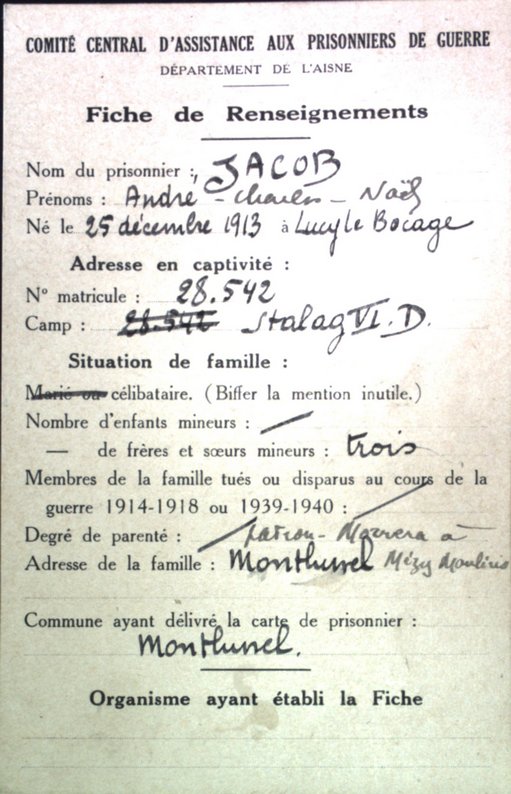 COMITÉ CENTRAL D'ASSISTANCE AUX PRISONNIERS DE GUERRE
DÉPARTEMENT DE L'AISNE
Fiche de Renseignements
Nom du prisonnier : JACOB
Prénoms : André - Charles - Noël
Né le 25 décembre 1913 à Lucy le Bocage
Adresse en captivité :
N° matricule : 28.542
Camp : 28.542 Stalag VI.D.
Situation de famille :
Marié ou célibataire. (Biffer la mention inutile.)
Nombre d'enfants mineurs : /
— de frères et sœurs mineurs : trois
Membres de la famille tués ou disparus au cours de la
guerre 1914-1918 ou 1939-1940 : /
Degré de parenté : / patron - à
Adresse de la famille : Monthurel Mézy Moulins
Commune ayant délivré la carte de prisonnier :
Monthurel.
Organisme ayant établi la Fiche